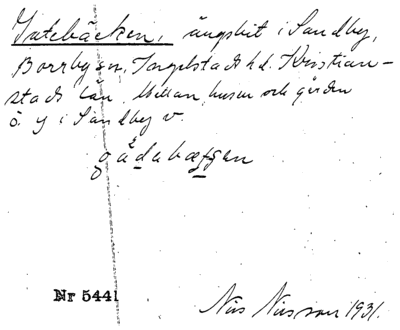 Gatebäcken, ängsbit i Sandby,
Borrby sn, Ingelstads hd. Kristian-
stads län. Mellan husen och gården
ö. y i Sandby v.
gådabæḱen
Nr 5441
Nils Nilsson 1931.